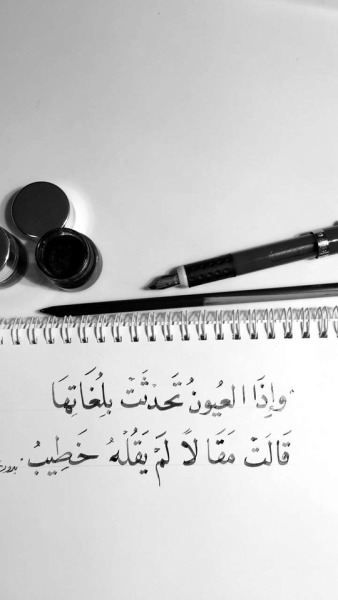 وَإِذَا العيونُ تَحَدثَتْ بِلُغَاتِهَا
قَالَتْ مَقَالاً لَمْ يَقُلْهُ خَطِيبُ